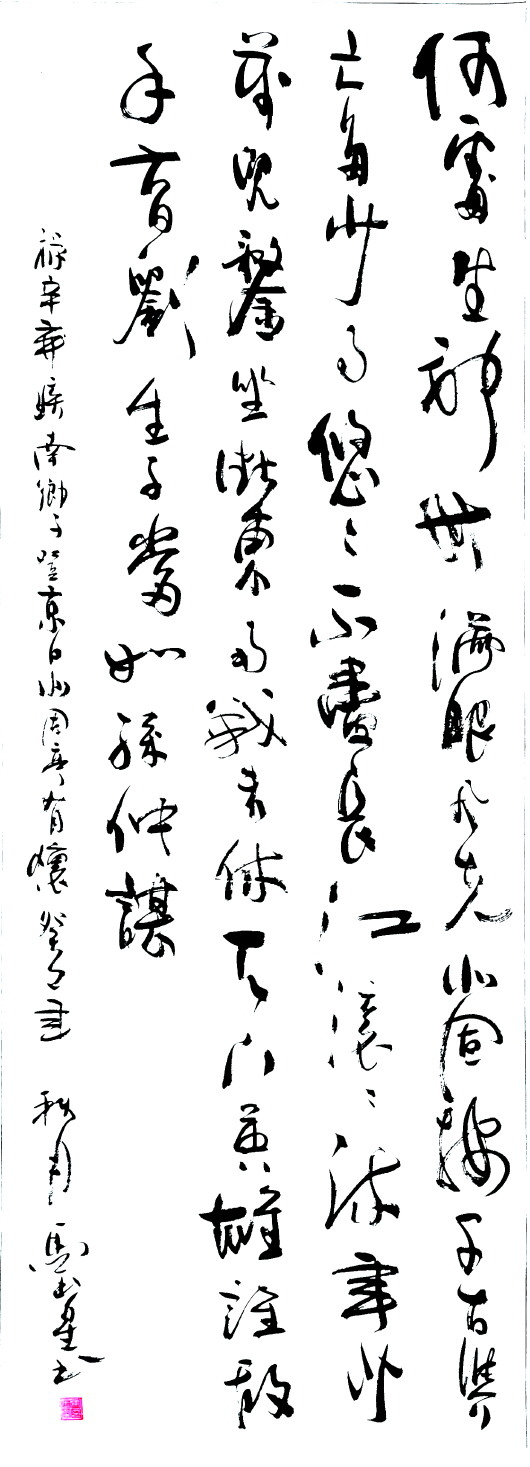 何處望神州滿眼風光北固樓千古興
亡多少事悠〻不盡長江滾〻流年少
萬兜鍪坐斷東南戰未休天下英雄誰敵
手曹劉生子當如孫仲謀
錄辛棄疾南鄉子登京口北固亭有懷 秋月 馬